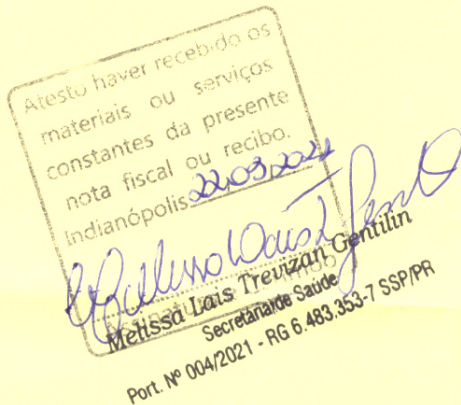 Atesto haver recebido os
materiais ou serviços
constantes da presente
nota fiscal ou recibo.
Indianópolis 22.03.2021
Melissa Lais Trevizan Gentilin
Secretária de Saúde
Port. Nº 004/2021 - RG 6.483.353-7 SSP/PR